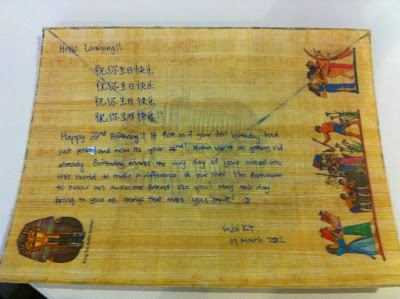 Hello Lanjong!!
祝你生日快乐
祝你生日快乐
祝你生日快乐
祝你生日快乐!!
Happy 22nd Birthday!! It felt as if your 21st birthday had
just passed and now its your 22nd! Haha we're all getting old
already. Birthday marks the very day of your arrival into
this world to make a difference in our lives! I'm fortunate
to know an awesome friend like you! May this day
bring to you all things that make you smile! :)
Wei Kit
19 March 2012